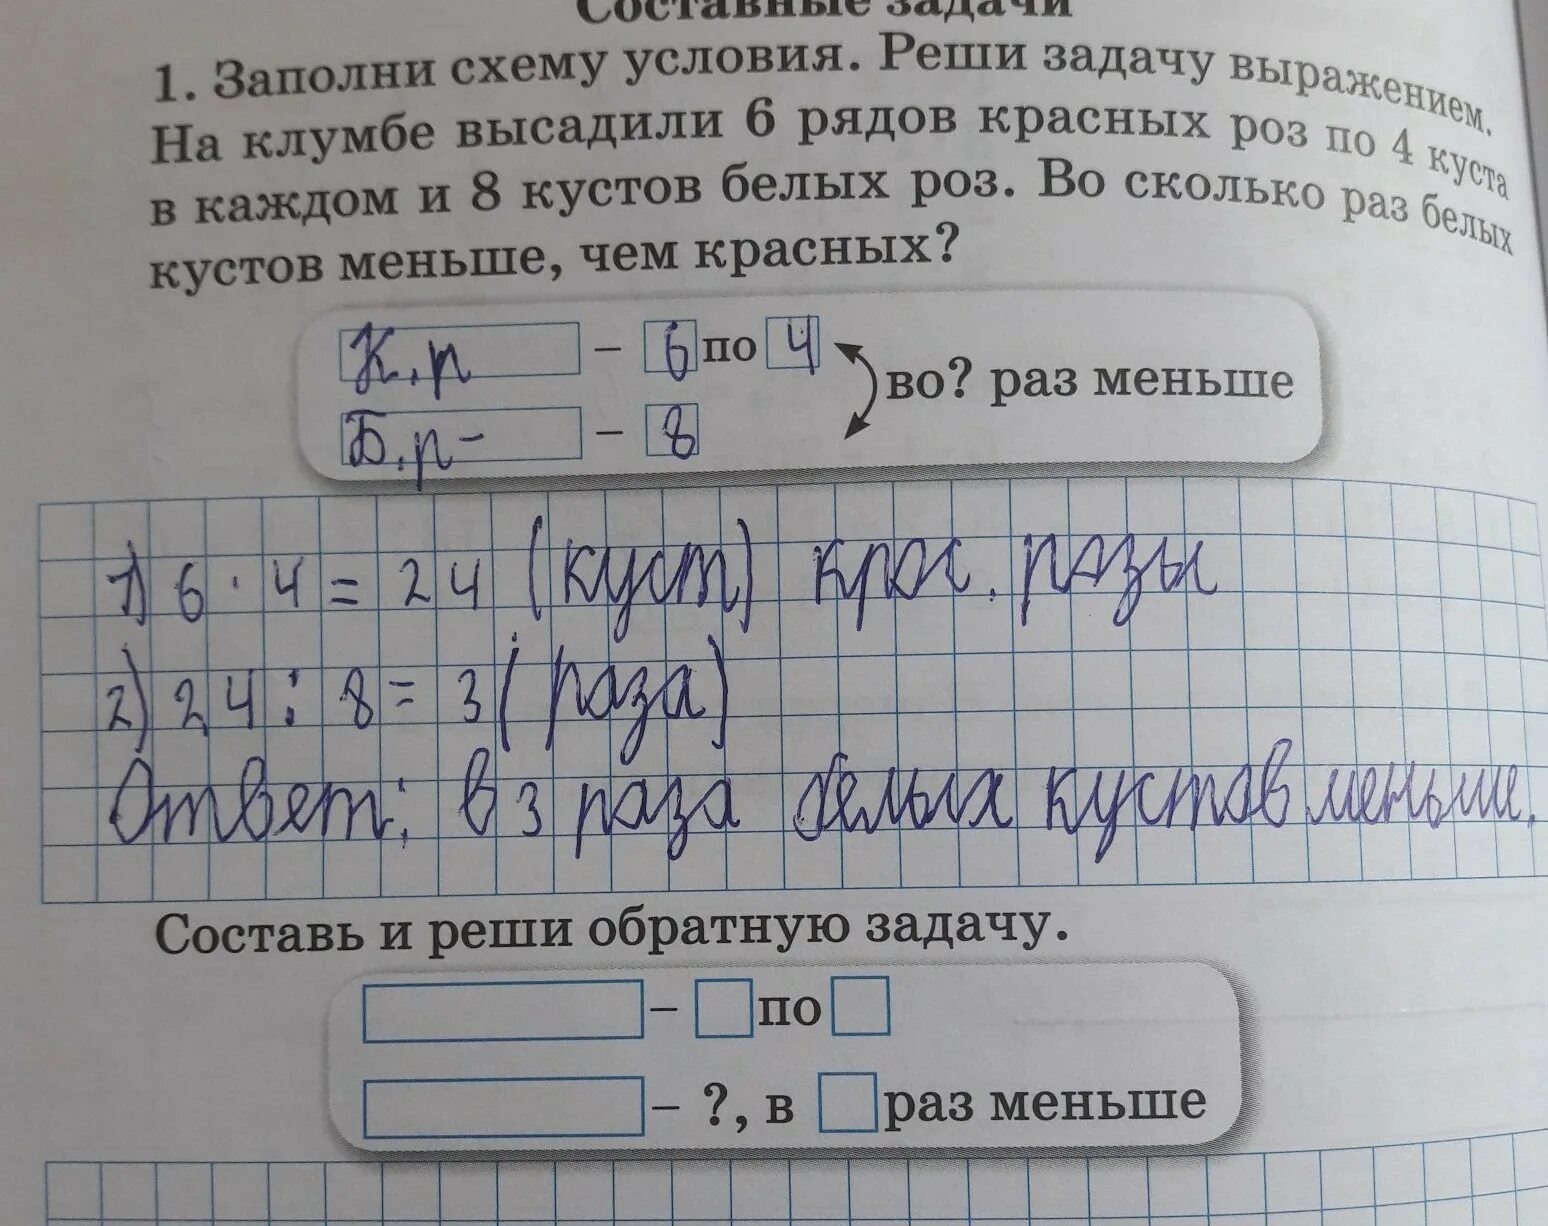 Составные задачи
1. Заполни схему условия. Реши задачу выражением.
На клумбе высадили 6 рядов красных роз по 4 куста
в каждом и 8 кустов белых роз. Во сколько раз белых
кустов меньше, чем красных?
К.р – 6 по 4
во? раз меньше
Б.р- – 8
1) 6 · 4 = 24 (куст) крас. розы
2) 24 : 8 = 3 (раза)
Ответ: в 3 раза белых кустов меньше.
Составь и реши обратную задачу.
– по
– ?, в раз меньше